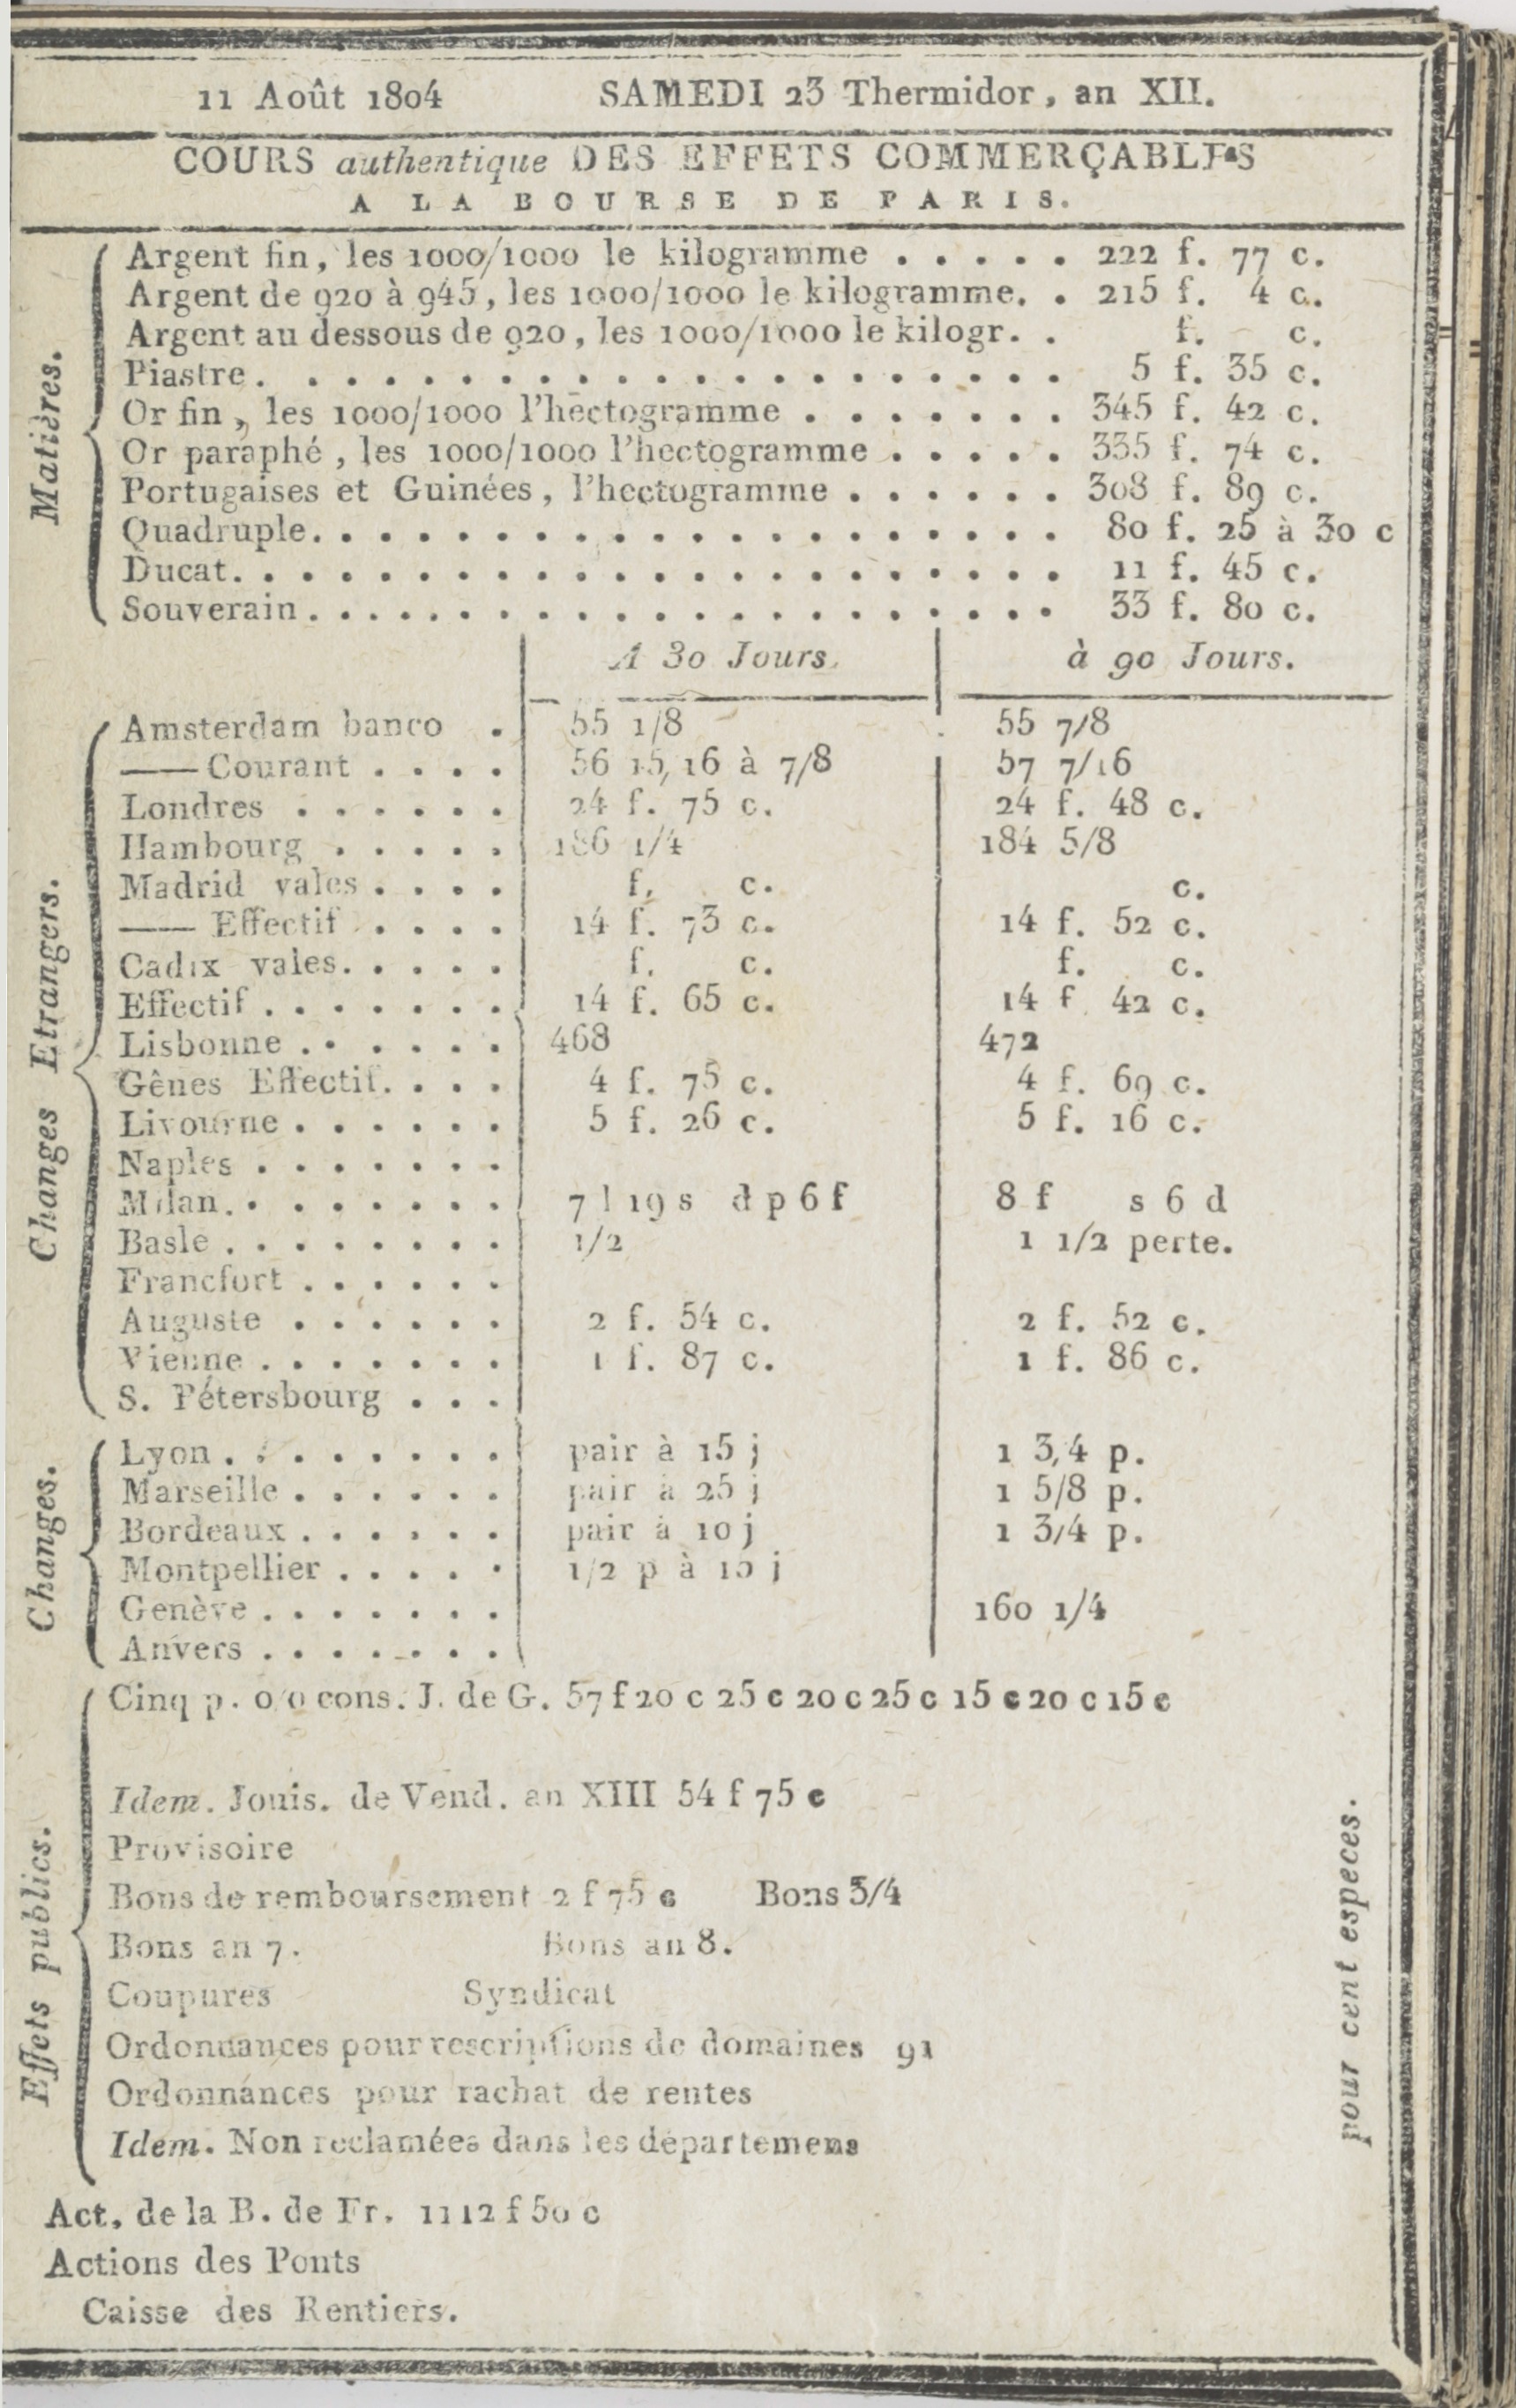 11 Août 1804 SAMEDI 23 Thermidor, an XII.
COURS authentique DES EFFETS COMMERÇABLES
A LA BOURSE DE PARIS.
Matières.
Argent fin, les 1000/1000 le kilogramme . . . . . 222 f. 77 c.
Argent de 920 à 945, les 1000/1000 le kilogramme. . 215 f. 4 c.
Argent au dessous de 920, les 1000/1000 le kilogr. . f. c.
Piastre. . . . . . . . . . . . . . . . . . . . . 5 f. 35 c.
Or fin, les 1000/1000 l'hectogramme . . . . . . . 345 f. 42 c.
Or paraphé, les 1000/1000 l'hectogramme . . . . . 335 f. 74 c.
Portugaises et Guinées, l'hectogramme . . . . . . 308 f. 89 c.
Quadruple. . . . . . . . . . . . . . . . . . . . 80 f. 25 à 30 c
Ducat. . . . . . . . . . . . . . . . . . . . . . 11 f. 45 c.
Souverain . . . . . . . . . . . . . . . . . . . . 33 f. 80 c.
A 30 Jours. à 90 Jours.
Changes Etrangers.
Amsterdam banco . 55 1/8 55 7/8
—— Courant . . . . 56 15/16 à 7/8 57 7/16
Londres . . . . . . 24 f. 75 c. 24 f. 48 c.
Hambourg . . . . . 186 1/4 184 5/8
Madrid vales . . . . f. c. c.
—— Effectif . . . . 14 f. 73 c. 14 f. 52 c.
Cadix vales. . . . . f. c. f. c.
Effectif . . . . . . . 14 f. 65 c. 14 f 42 c.
Lisbonne . . . . . . 468 472
Gênes Effectif. . . . 4 f. 75 c. 4 f. 69 c.
Livourne . . . . . . 5 f. 26 c. 5 f. 16 c.
Naples . . . . . . .
Milan. . . . . . . . 7 l 19 s d p 6 f 8 f s 6 d
Basle . . . . . . . . 1/2 1 1/2 perte.
Francfort . . . . . .
Auguste . . . . . . 2 f. 54 c. 2 f. 52 c.
Vienne . . . . . . . 1 f. 87 c. 1 f. 86 c.
S. Pétersbourg . . .
Changes.
Lyon . . . . . . . . pair à 15 j 1 3/4 p.
Marseille . . . . . . pair à 25 j 1 5/8 p.
Bordeaux . . . . . . pair à 10 j 1 3/4 p.
Montpellier . . . . . 1/2 p à 15 j
Genève . . . . . . . 160 1/4
Anvers . . . . . . .
Effets publics.
Cinq p. 0/0 cons. J. de G. 57 f 20 c 25 c 20 c 25 c 15 c 20 c 15 c
Idem. Jouis. de Vend. an XIII 54 f 75 c
Provisoire
Bons de remboursement 2 f 75 c Bons 3/4
Bons an 7. Bons an 8.
Coupures Syndicat
Ordonnances pour rescriptions de domaines 91
Ordonnances pour rachat de rentes
Idem. Non reclamées dans les départemens
pour cent especes.
Act. de la B. de Fr. 1112 f 50 c
Actions des Ponts
Caisse des Rentiers.